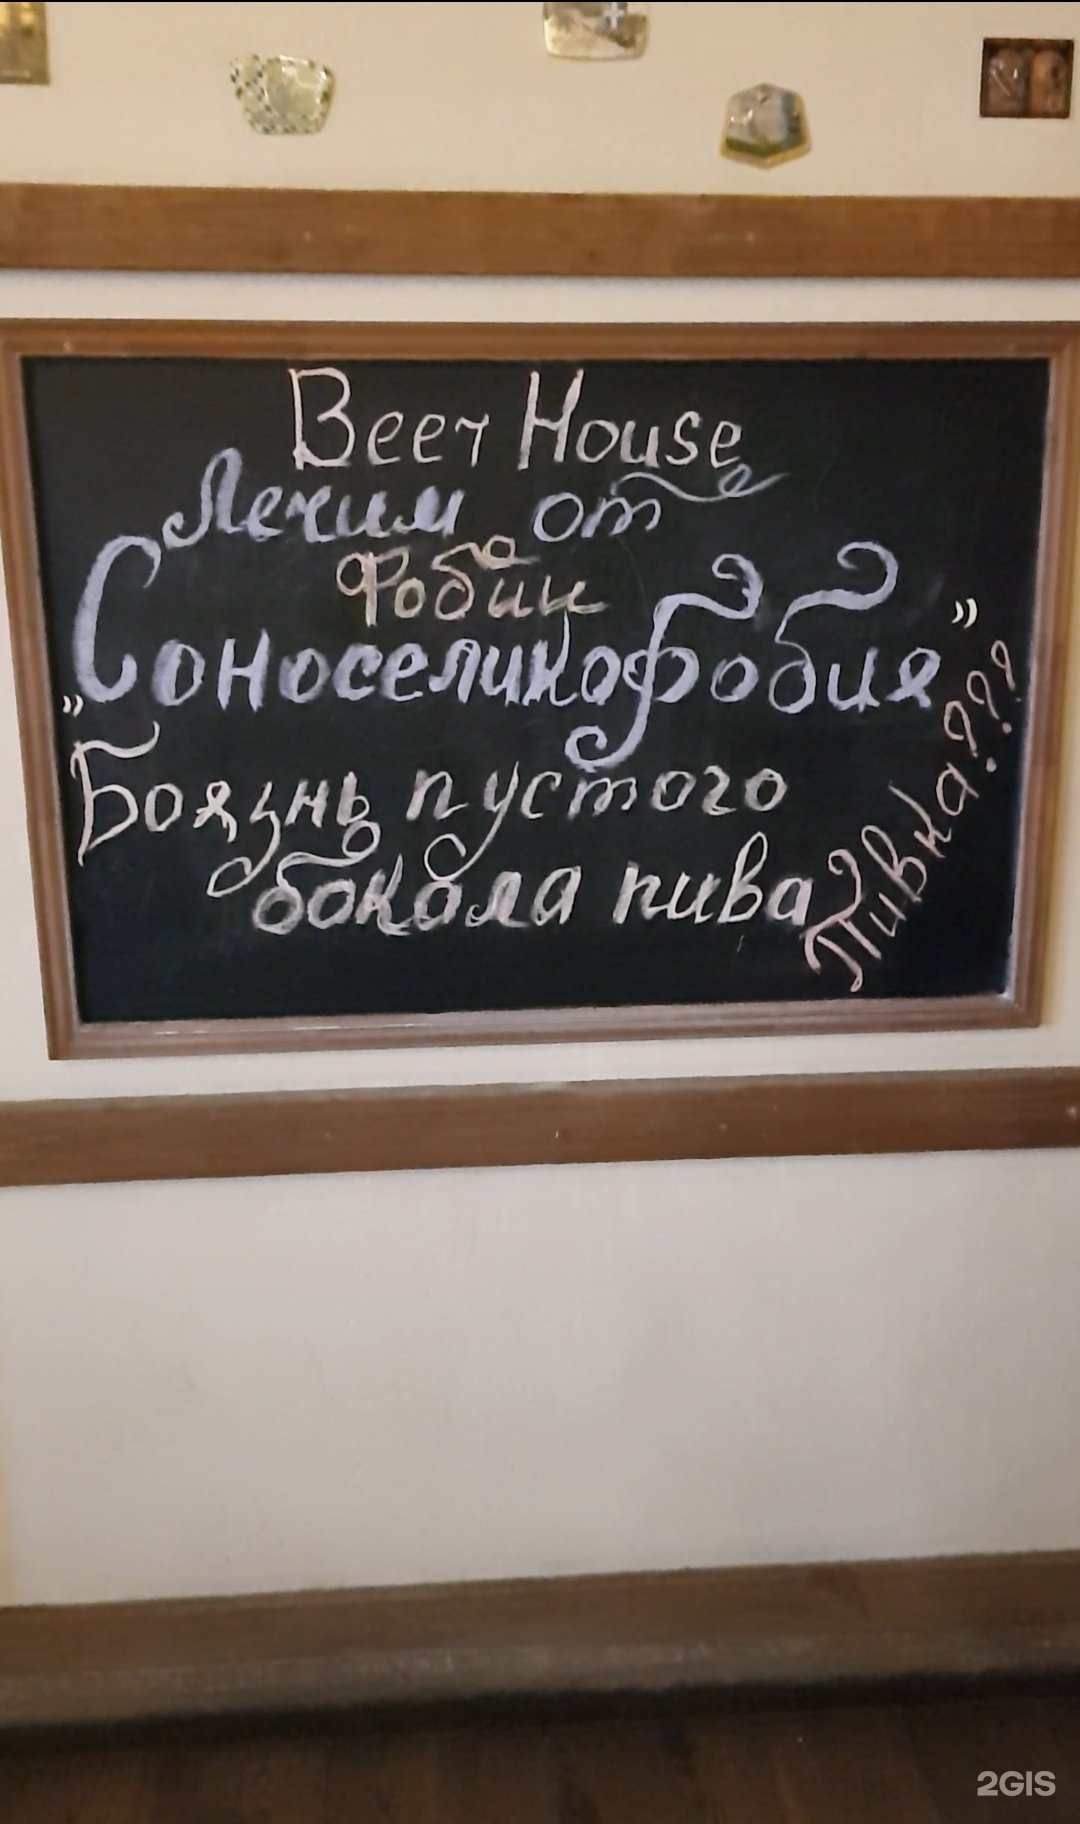 Beer House
Лечим от
Фобии
"Соноселикафобия"
Боязнь пустого
бокала пива
Пивка???
2GIS